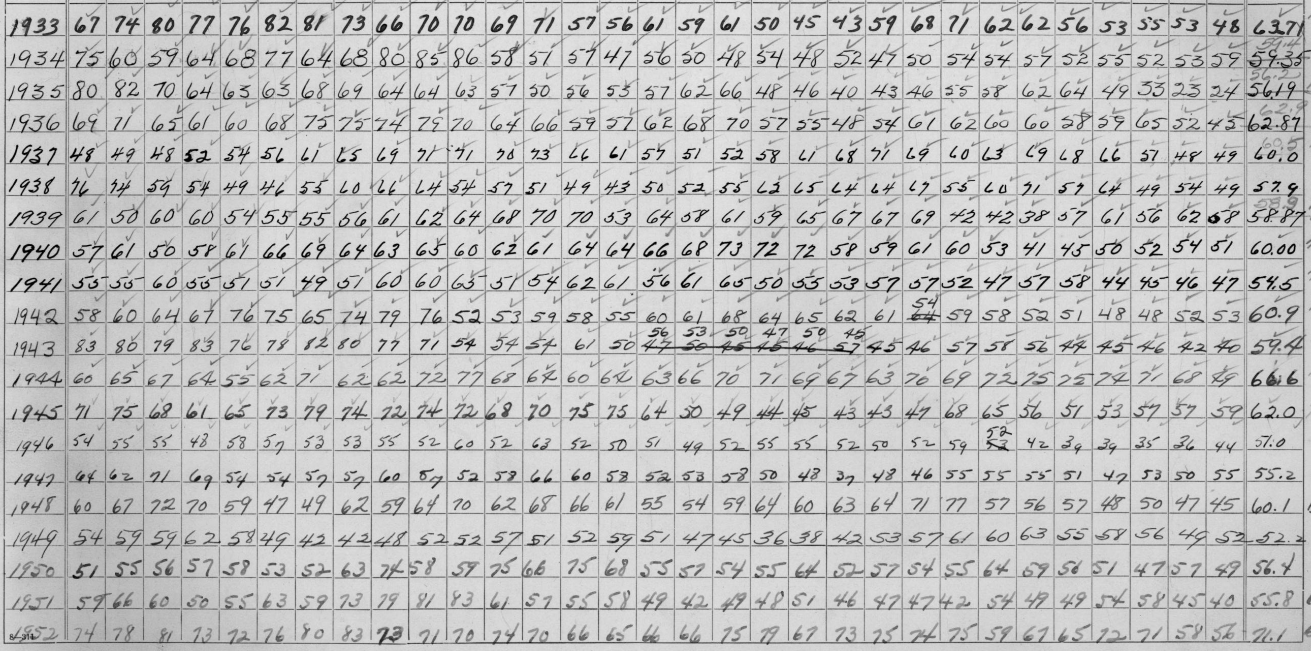 1933 67 74 80 77 76 82 81 73 66 70 70 69 71 57 56 61 59 61 50 45 43 59 68 71 62 62 56 53 55 53 48 63.71
1934 75 60 59 64 68 77 64 68 80 85 86 58 51 57 47 56 50 48 54 48 52 47 50 54 54 57 52 55 52 53 59 59.35
1935 80 82 70 64 63 63 68 69 64 64 63 57 50 56 53 57 62 66 48 46 40 43 46 55 58 62 64 49 33 23 24 56.19
1936 69 71 65 61 60 68 75 75 74 79 70 64 66 59 57 62 68 70 57 55 48 54 61 62 60 60 58 59 65 52 45 62.87
1937 48 49 48 52 54 56 61 65 69 71 71 70 73 66 61 57 51 52 58 61 68 71 69 60 63 69 68 66 57 48 49 60.0
1938 76 74 59 54 49 46 55 60 66 64 54 57 51 49 43 50 52 55 62 65 64 64 67 55 60 71 57 64 49 54 49 57.9
1939 61 50 60 60 54 55 55 56 61 62 64 68 70 70 53 64 58 61 59 65 67 67 69 42 42 38 57 61 56 62 58 58.87
1940 57 61 50 58 61 66 69 64 63 65 60 62 61 64 64 66 68 73 72 72 58 59 61 60 53 41 45 50 52 54 51 60.00
1941 55 55 60 55 51 51 49 51 60 60 65 51 54 62 61 56 61 65 50 55 53 57 57 52 47 57 58 44 45 46 47 54.5
54
1942 58 60 64 67 76 75 65 74 79 76 52 53 59 58 55 60 61 68 64 65 62 61 64 59 58 52 51 48 48 52 53 60.9
56 53 50 47 50 45
1943 83 80 79 83 76 78 82 80 77 71 54 54 54 61 50 47 50 45 45 46 57 45 46 57 58 56 44 45 46 42 40 59.4
1944 60 65 67 64 55 62 71 62 62 72 77 68 64 60 64 63 66 70 71 69 67 63 70 69 72 75 75 74 71 68 49 66.6
1945 71 75 68 61 65 73 79 74 72 74 72 68 70 75 75 64 50 49 44 45 43 43 47 68 65 56 51 53 57 57 59 62.0
52
1946 54 55 55 48 58 57 53 53 55 52 60 52 63 52 50 51 49 52 55 55 52 50 52 59 53 42 39 39 35 36 44 51.0
1947 64 62 71 69 54 54 57 57 60 57 52 58 66 60 58 52 53 58 50 48 37 48 46 55 55 55 51 47 53 50 55 55.2
1948 60 67 72 70 59 47 49 62 59 64 70 62 68 66 61 55 54 59 64 60 63 64 71 77 57 56 57 48 50 47 45 60.1
1949 54 59 59 62 58 49 42 42 48 52 52 57 51 52 59 51 47 45 36 38 42 53 57 61 60 63 55 58 56 49 52 52.2
1950 51 55 56 57 58 53 52 63 74 58 59 75 66 75 68 55 57 54 55 64 52 57 54 55 64 59 56 51 47 57 49 56.4
1951 59 66 60 50 55 63 59 73 79 81 83 61 57 55 58 49 42 49 48 51 46 47 47 42 54 49 49 54 58 45 40 55.8
1952 74 78 81 73 72 76 80 83 73 71 70 74 70 66 65 66 66 75 79 67 73 75 74 75 59 67 65 72 71 58 56 71.1